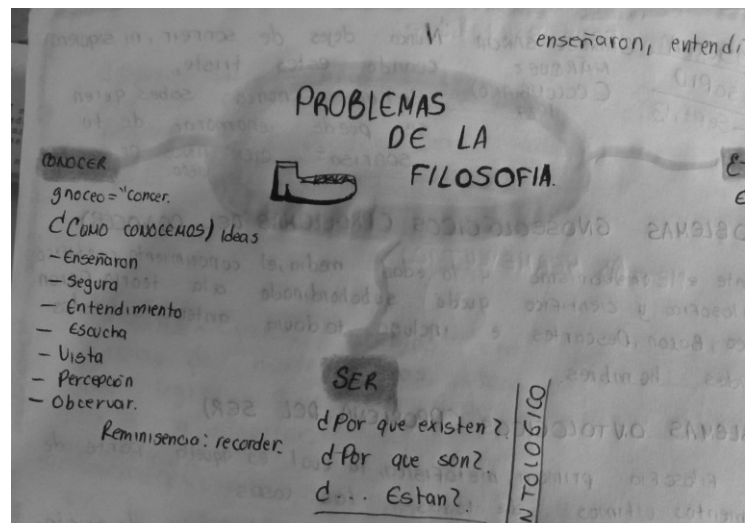 enseñaron, entendi
PROBLEMAS
DE LA
FILOSOFIA.
CONOCER
gnoceo = "concer.
¿Como conocemos) ideas
- Enseñaron
- Segura
- Entendimiento
- Escucha
- Vista
- Percepción
- Obcervar.
Reminisencia: recorder.
SER
¿Por que existen?
¿Por que son?
¿... Estan?
NTOLOGICO